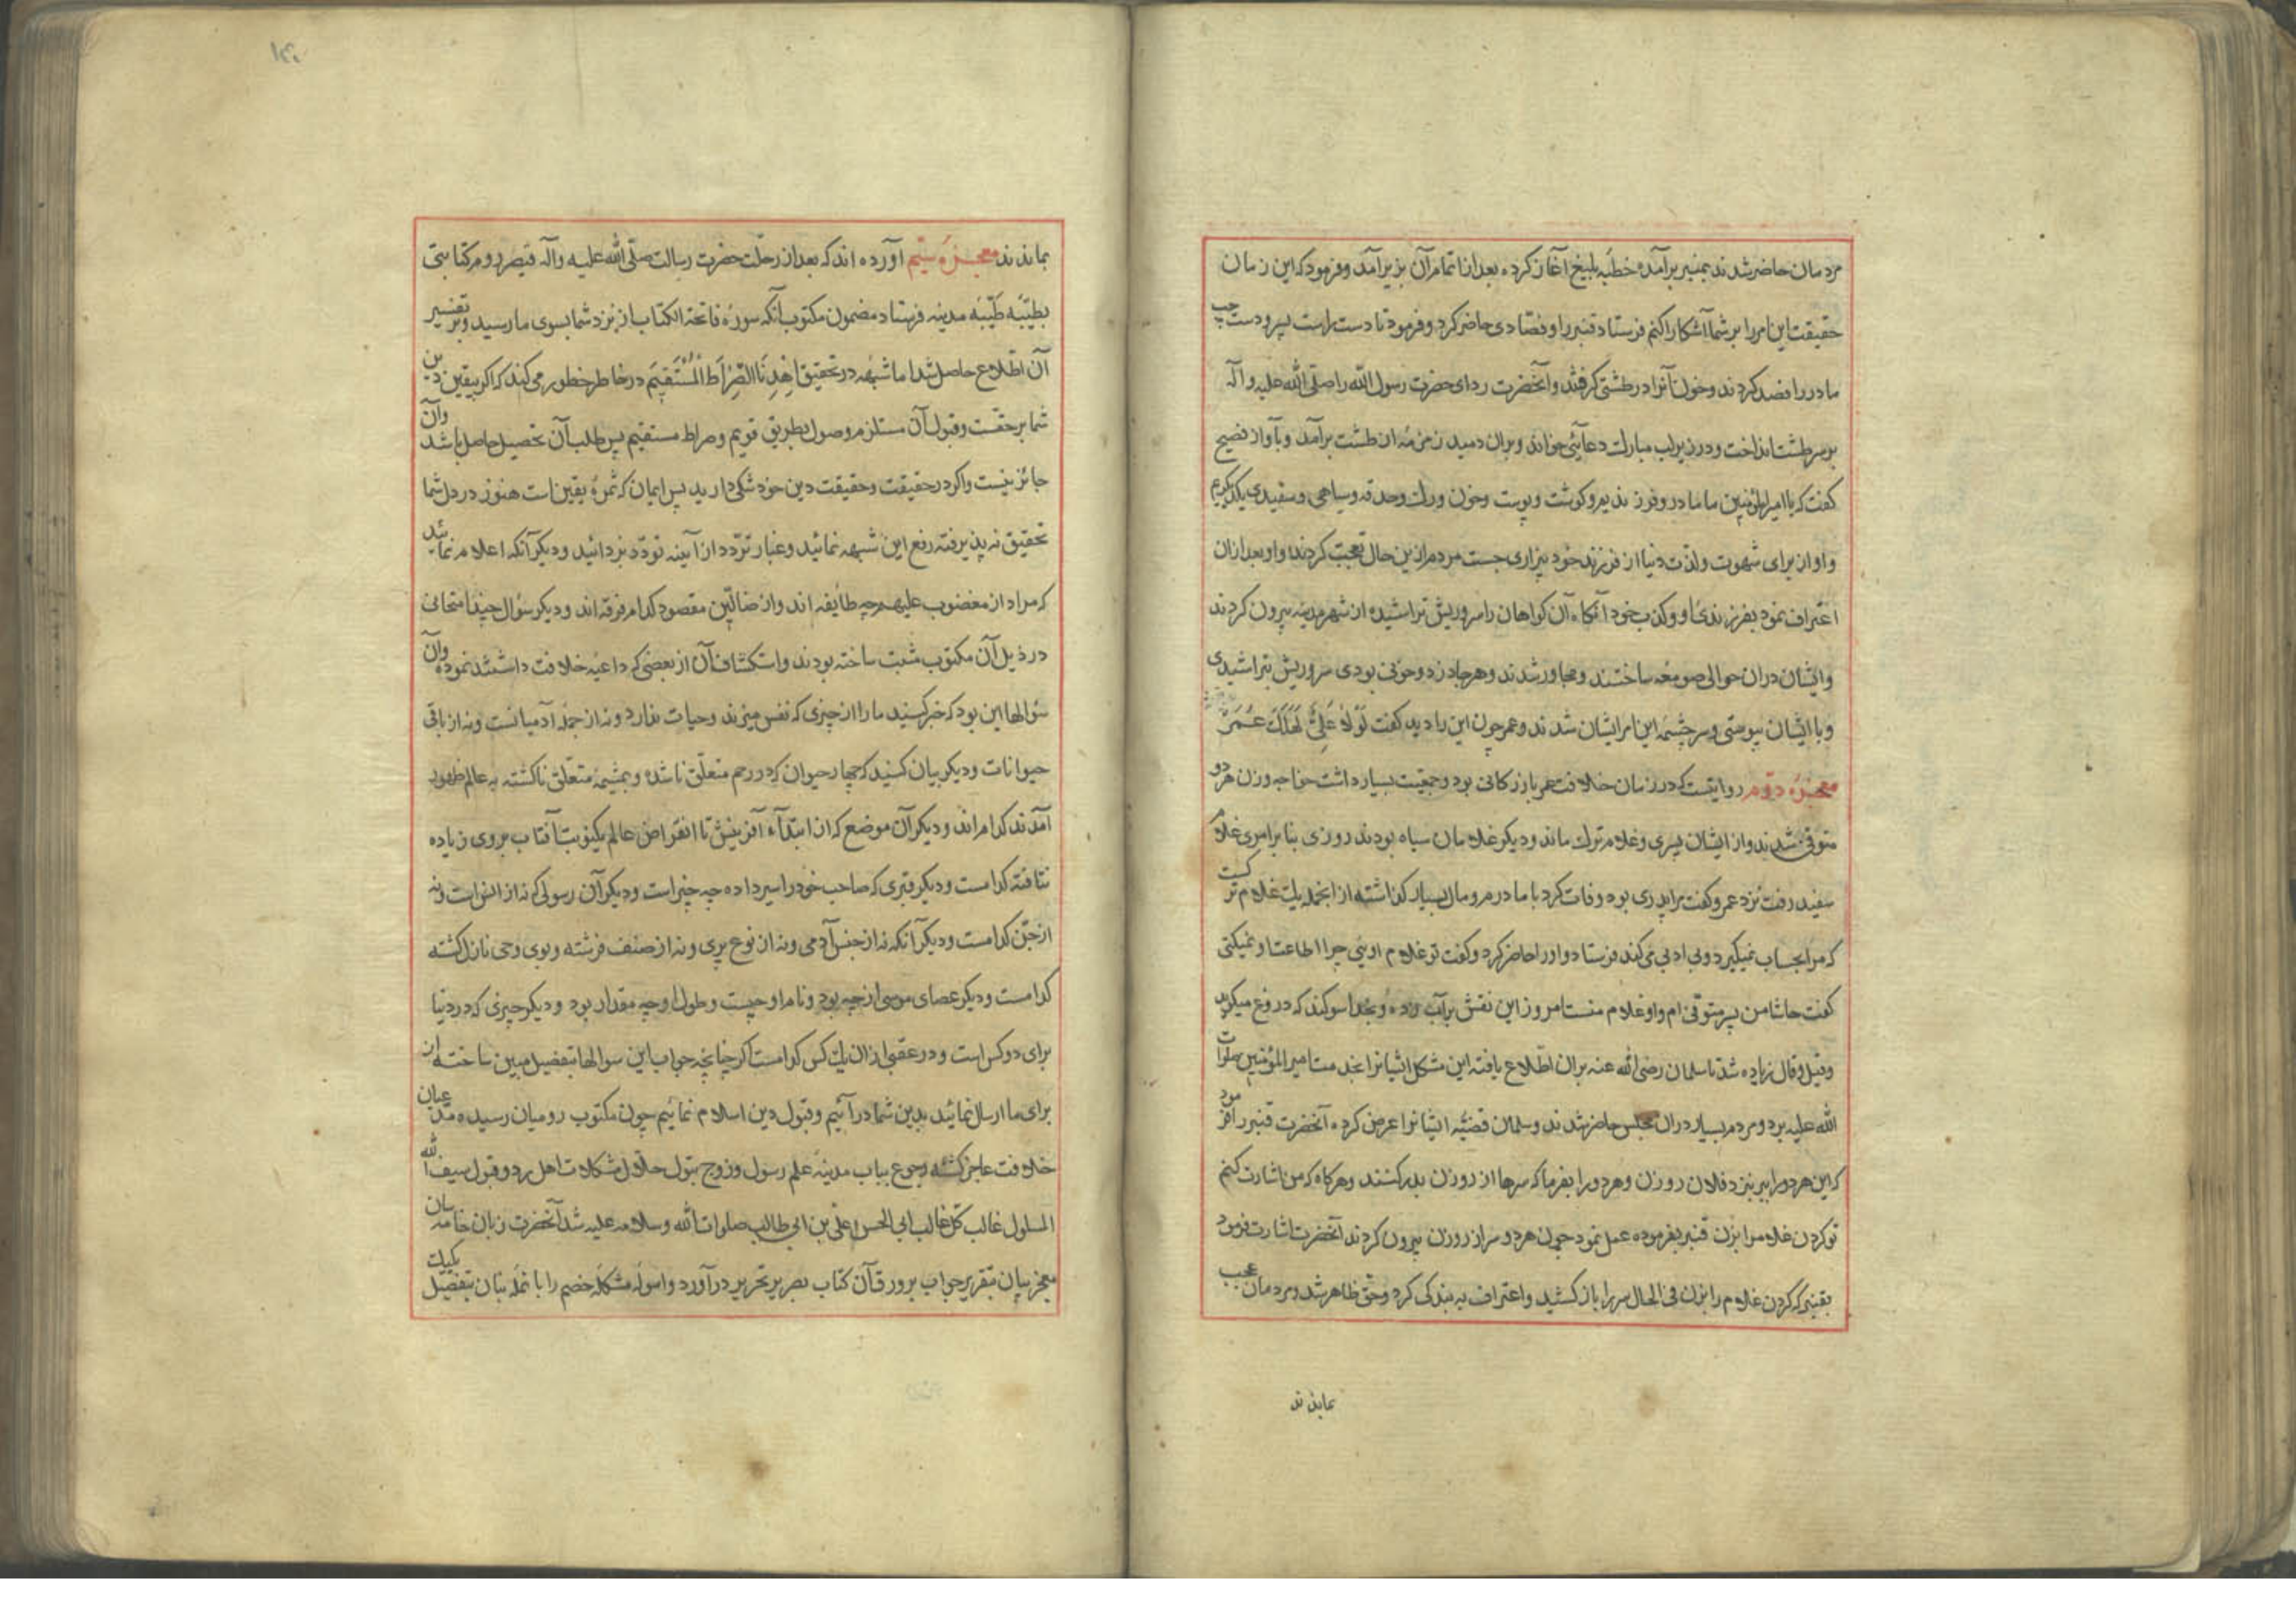 مردمان حاضر شدند بمنبر برآمده خطبه بلیغ آغاز کرده بعد از اتمام آن بزیر آمد و فرمود که این زمان
حقیقت این امر را بر شما آشکارا کنم فرستاد قنبر را و فصادی حاضر کرد و فرمود تا دست راست پسر و دست چپ
مادر را فصد کردند و خون آنرا در طشتی گرفتند و آنحضرت ردای حضرت رسول الله را صلی الله علیه و آله
بر سر طشت انداخت و در زیر لب مبارک دعائی خواند و بران دمید زمزمه از طشت برآمد و بآواز فصیح
گفت که یا امیرالمؤمنین ما مادر و فرزندیم و گوشت و پوست و خون و رک و حدقه و سیاهی و سفیدی یکدیگریم
و او از برای شهوت و لذت دنیا از فرزند خود بیزاری جست مردم ازین حال تعجب کردند و او بعد ازان
اعتراف نمود بفرزندی او و کذب خود آنگاه آن گواهان را سر و ریش تراشیده از شهر مدینه بیرون کردند
و ایشان دران حوالی صومعه ساختند و مجاور شدند و هر جا دزد و خونی بودی سر و ریش بتراشیدی
و با ایشان پیوستی و سرچشمه این امر ایشان شدند و عمر چون این را دید گفت لَوْلا عَلِیٌّ لَهَلَکَ عُمَر
معجزه دوم روایتست که در زمان خلافت عمر بازرکانی بود و جمعیت بسیار داشت خواجه و زن هر دو
متوفی شدند و از ایشان پسری و غلام ترک ماند و دیگر غلامان سیاه بودند روزی بنا بر امری غلام
سفید رفت نزد عمر و گفت مرا پدری بود وفات کرد با مادرم و مال بسیار گذاشته از انجمله یک غلام ترکیست
که مرا بحساب نمیگیرد و بی ادبی می کند فرستاد و او را حاضر کرد و گفت تو غلام اوئی چرا اطاعت او نمیکنی
گفت حاشا من پسر متوفی ام و او غلام منست امروز این نقش بر آب زده و بخدا سوگند که دروغ میگوید
و قیل و قال زیاده شد تا سلمان رضی الله عنه بران اطلاع یافته این مشکل ایشانرا بخدمت امیر المؤمنین صلوات
الله علیه برد و مردم بسیار دران مجلس حاضر شدند و سلمان قضیه ایشانرا عرض کرد آنحضرت قنبر را فرمود
که این هر دو را ببر بنزد فلان روزن و هر دو را بفرما که سرها از روزن بدر کنند و هرگاه که من اشارت کنم
تو گردن غلام را بزن قنبر بفرموده عمل نمود چون هر دو سر از روزن بیرون کردند آنحضرت اشارت فرمود
بقنبر که گردن غلام را بزن فی الحال سر را باز کشید و اعتراف به بندگی کرد و حق ظاهر شد و مردمان عجب
بماندند
بماندند معجزه سیم آورده اند که بعد از رحلت حضرت رسالت صلی الله علیه و آله قیصر روم کتابتی
بطیبه طیبه مدینه فرستاد مضمون مکتوب آنکه سوره فاتحة الکتاب از نزد شما بسوی ما رسید و بر تفسیر
آن اطلاع حاصل شد اما شبهه در تحقیق اِهْدِنَا الصِّرٰاطَ الْمُسْتَقِیم در خاطر خطور می کند که اگر بیقین دین
شما بر حقست و قبول آن مستلزم وصول بطریق قویم و صراط مستقیم پس طلب آن تحصیل حاصل باشد و آن
جائز نیست و اگر در حقیقت و حقیقت دین خود شکی دارید پس ایمان که ثمره یقین است هنوز در دل شما
تحقیق نه پذیرفته رفع این شبهه نمائید و غبار تردد از آینه تودد بزدائید و دیگر آنکه اعلام نمائید
که مراد از مغضوب علیهم چه طایفه اند و از ضالین مقصود کدام فرقه اند و دیگر سؤال چند امتحانی
در ذیل آن مکتوب مثبت ساخته بودند و استکشاف آن از بعضی که داعیه خلافت داشتند نموده و آن
سؤالها این بود که خبر کنید ما را از چیزی که نفس میزند و حیات ندارد و نه از جمله آدمیانست و نه از باقی
حیوانات و دیگر بیان کنید که چهار حیوان که در رحم متعلق ناشده و بمشیمه متعلق ناکشته به عالم ظهور
آمدند کدام اند و دیگر آن موضع که از ابتداء آفرینش تا انقراض عالم یکنوبت آفتاب بروی زیاده
نتافته کدامست و دیگر قبری که صاحب خود را سیر داده چه چیز است و دیگر آن رسولی که نه از انس است و نه
از جن کدامست و دیگر آنکه نه از جنس آدمی و نه از نوع پری و نه از صنف فرشته و بوی وحی نازل کشته
کدامست و دیگر عصای موسی از چه بود و نام او چیست و طول او چه مقدار بود و دیگر چیزی که در دنیا
برای دو کس است و در عقبی ازان یک کس کدامست اگر چنانچه جواب این سوالها بتفصیل مبین ساخته از
برای ما ارسال نمائید بدین شما درآئیم و قبول دین اسلام نمائیم چون مکتوب رومیان رسید مدعیان
خلافت عاجز کشته رجوع بباب مدینه علم رسول و زوج بتول حلال مشکلات اهل رد و قبول سیف الله
المسلول غالب کل غالب ابی الحسن علی بن ابی طالب صلوات الله و سلامه علیه شد آنحضرت زبان خامه سان
معجز بیان بتقریر جواب بر ورق آن کتاب بصریر تحریر درآورد و اسوله مشکله خصم را با نمله بنان بتفصیل یکیک